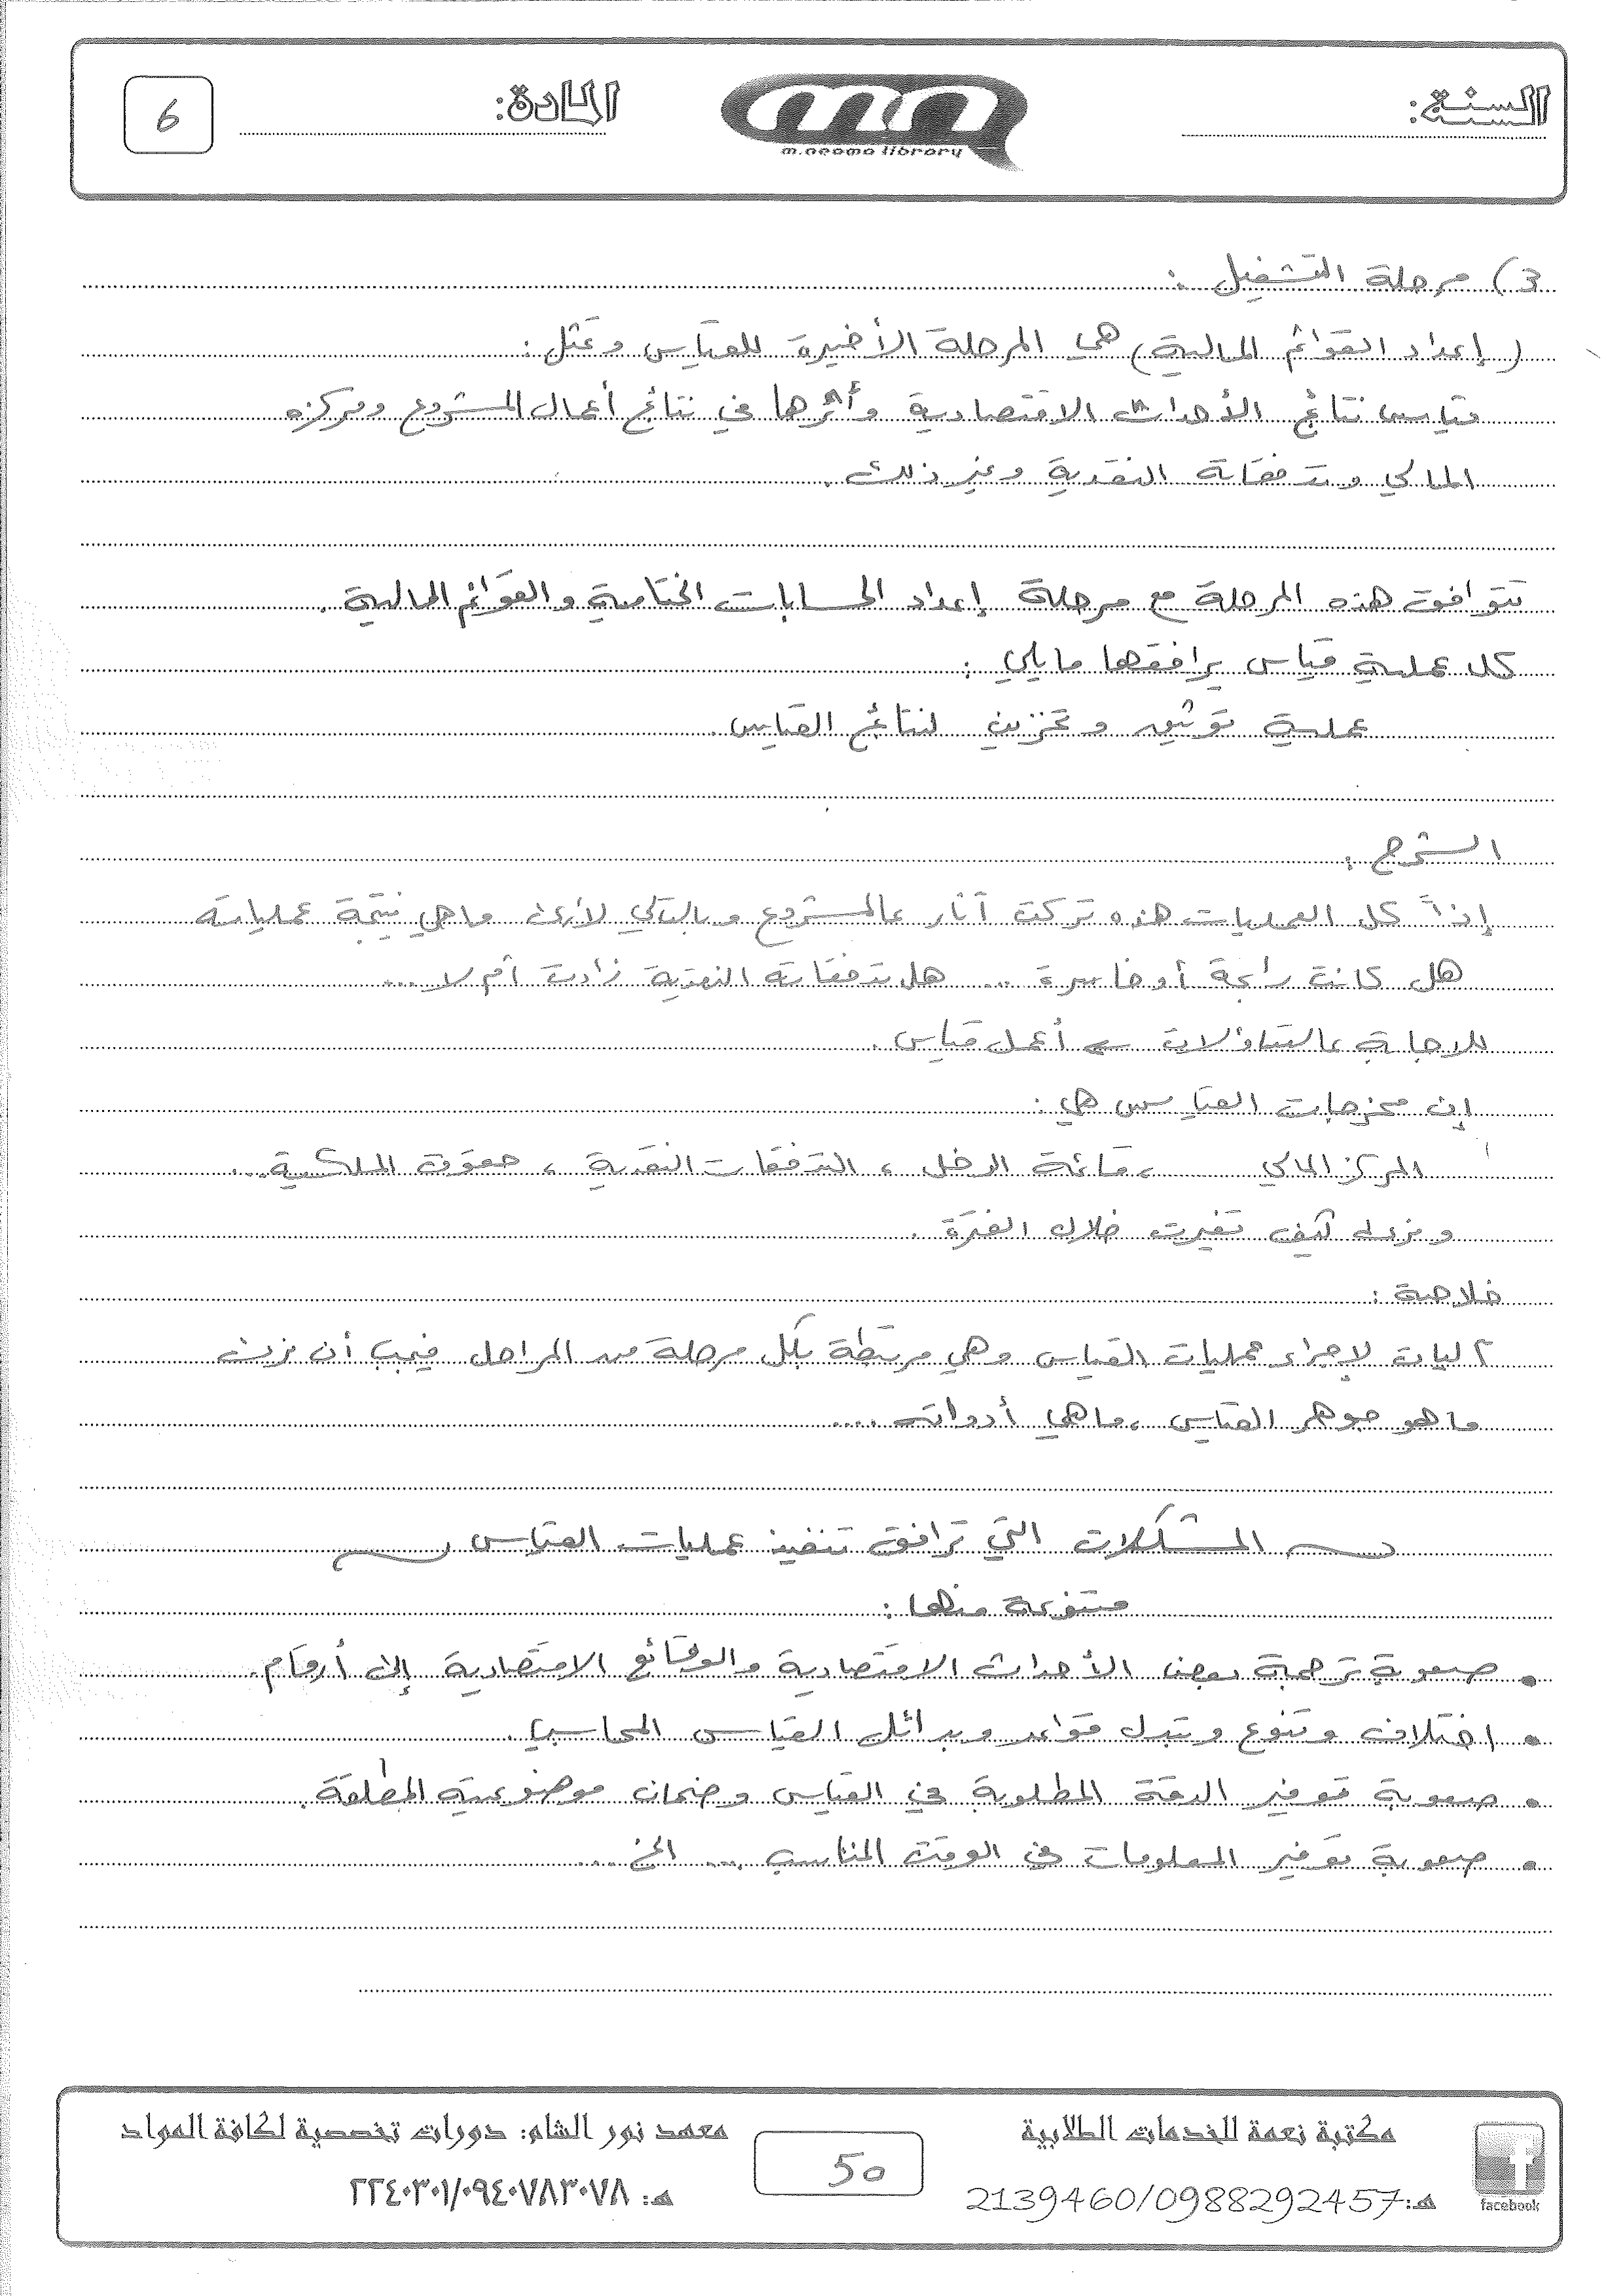 السنة:
m.neama library
المادة:
6
3) مرحلة التشغيل:
(إعداد القوائم المالية) هي المرحلة الأخيرة للقياس وتمثل:
قياس نتائج الأحداث الاقتصادية وأثرها في نتائج أعمال المشروع ومركزه
المالي وتدفقاته النقدية وغير ذلك.
تتوافق هذه المرحلة مع مرحلة إعداد الحسابات الختامية والقوائم المالية.
كل عملية قياس يرافقها مايلي:
عملية توثيق وتخزين لنتائج القياس.
الشرح:
إذاً كل العمليات هذه تركت آثار عالمشروع وبالتالي لازم ماهي نتيجة عملياته
هل كانت رابحة أو خاسرة ... هل تدفقاته النقدية زادت أم لا ...
للاجابة عالتساؤلات ← أعمل قياس.
إن مخرجات القياس هي:
المركز المالي ، قائمة الدخل ، التدفقات النقدية ، حقوق الملكية...
كيف تغيرت خلال الفترة.
خلاصة:
آليات لإجراء عمليات القياس وهي مرتبطة بكل مرحلة من المراحل فيجب أن نعرف
ما هو جوهر القياس ، ماهي أدواته ....
المشكلات التي ترافق تنفيذ عمليات القياس
متنوعة منها:
• صعوبة ترجمة بعض الأحداث الاقتصادية والوقائع الاقتصادية إلى أرقام.
• اختلاف وتنوع وتبدل قواعد وبدائل القياس المحاسبي.
• صعوبة توفير الدقة المطلوبة في القياس وضمان موضوعيته المطلقة.
• صعوبة توفير المعلومات في الوقت المناسب ... الخ ...
facebook
مكتبة نعمة للخدمات الطلابية
هـ: 2139460/0988292457
50
معهد نور الشام: دورات تخصصية لكافة المواد
هـ: ٢٢٤٠٣٠١/٠٩٤٠٧٨٣٠٧٨